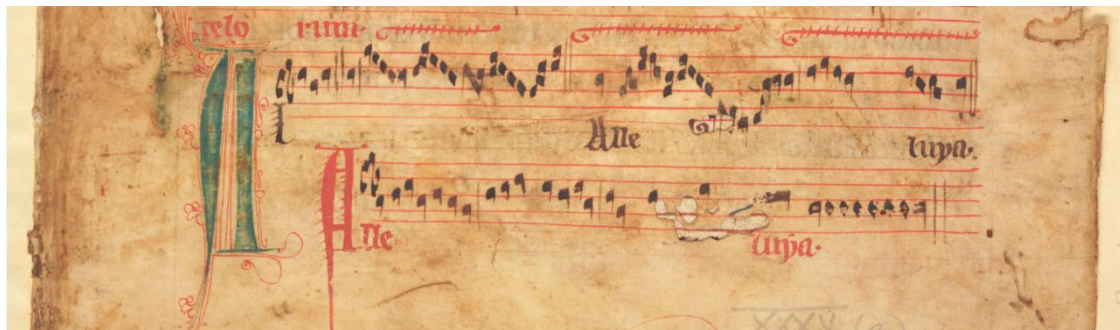 celo rum.
Alle luya.
Alle luya.